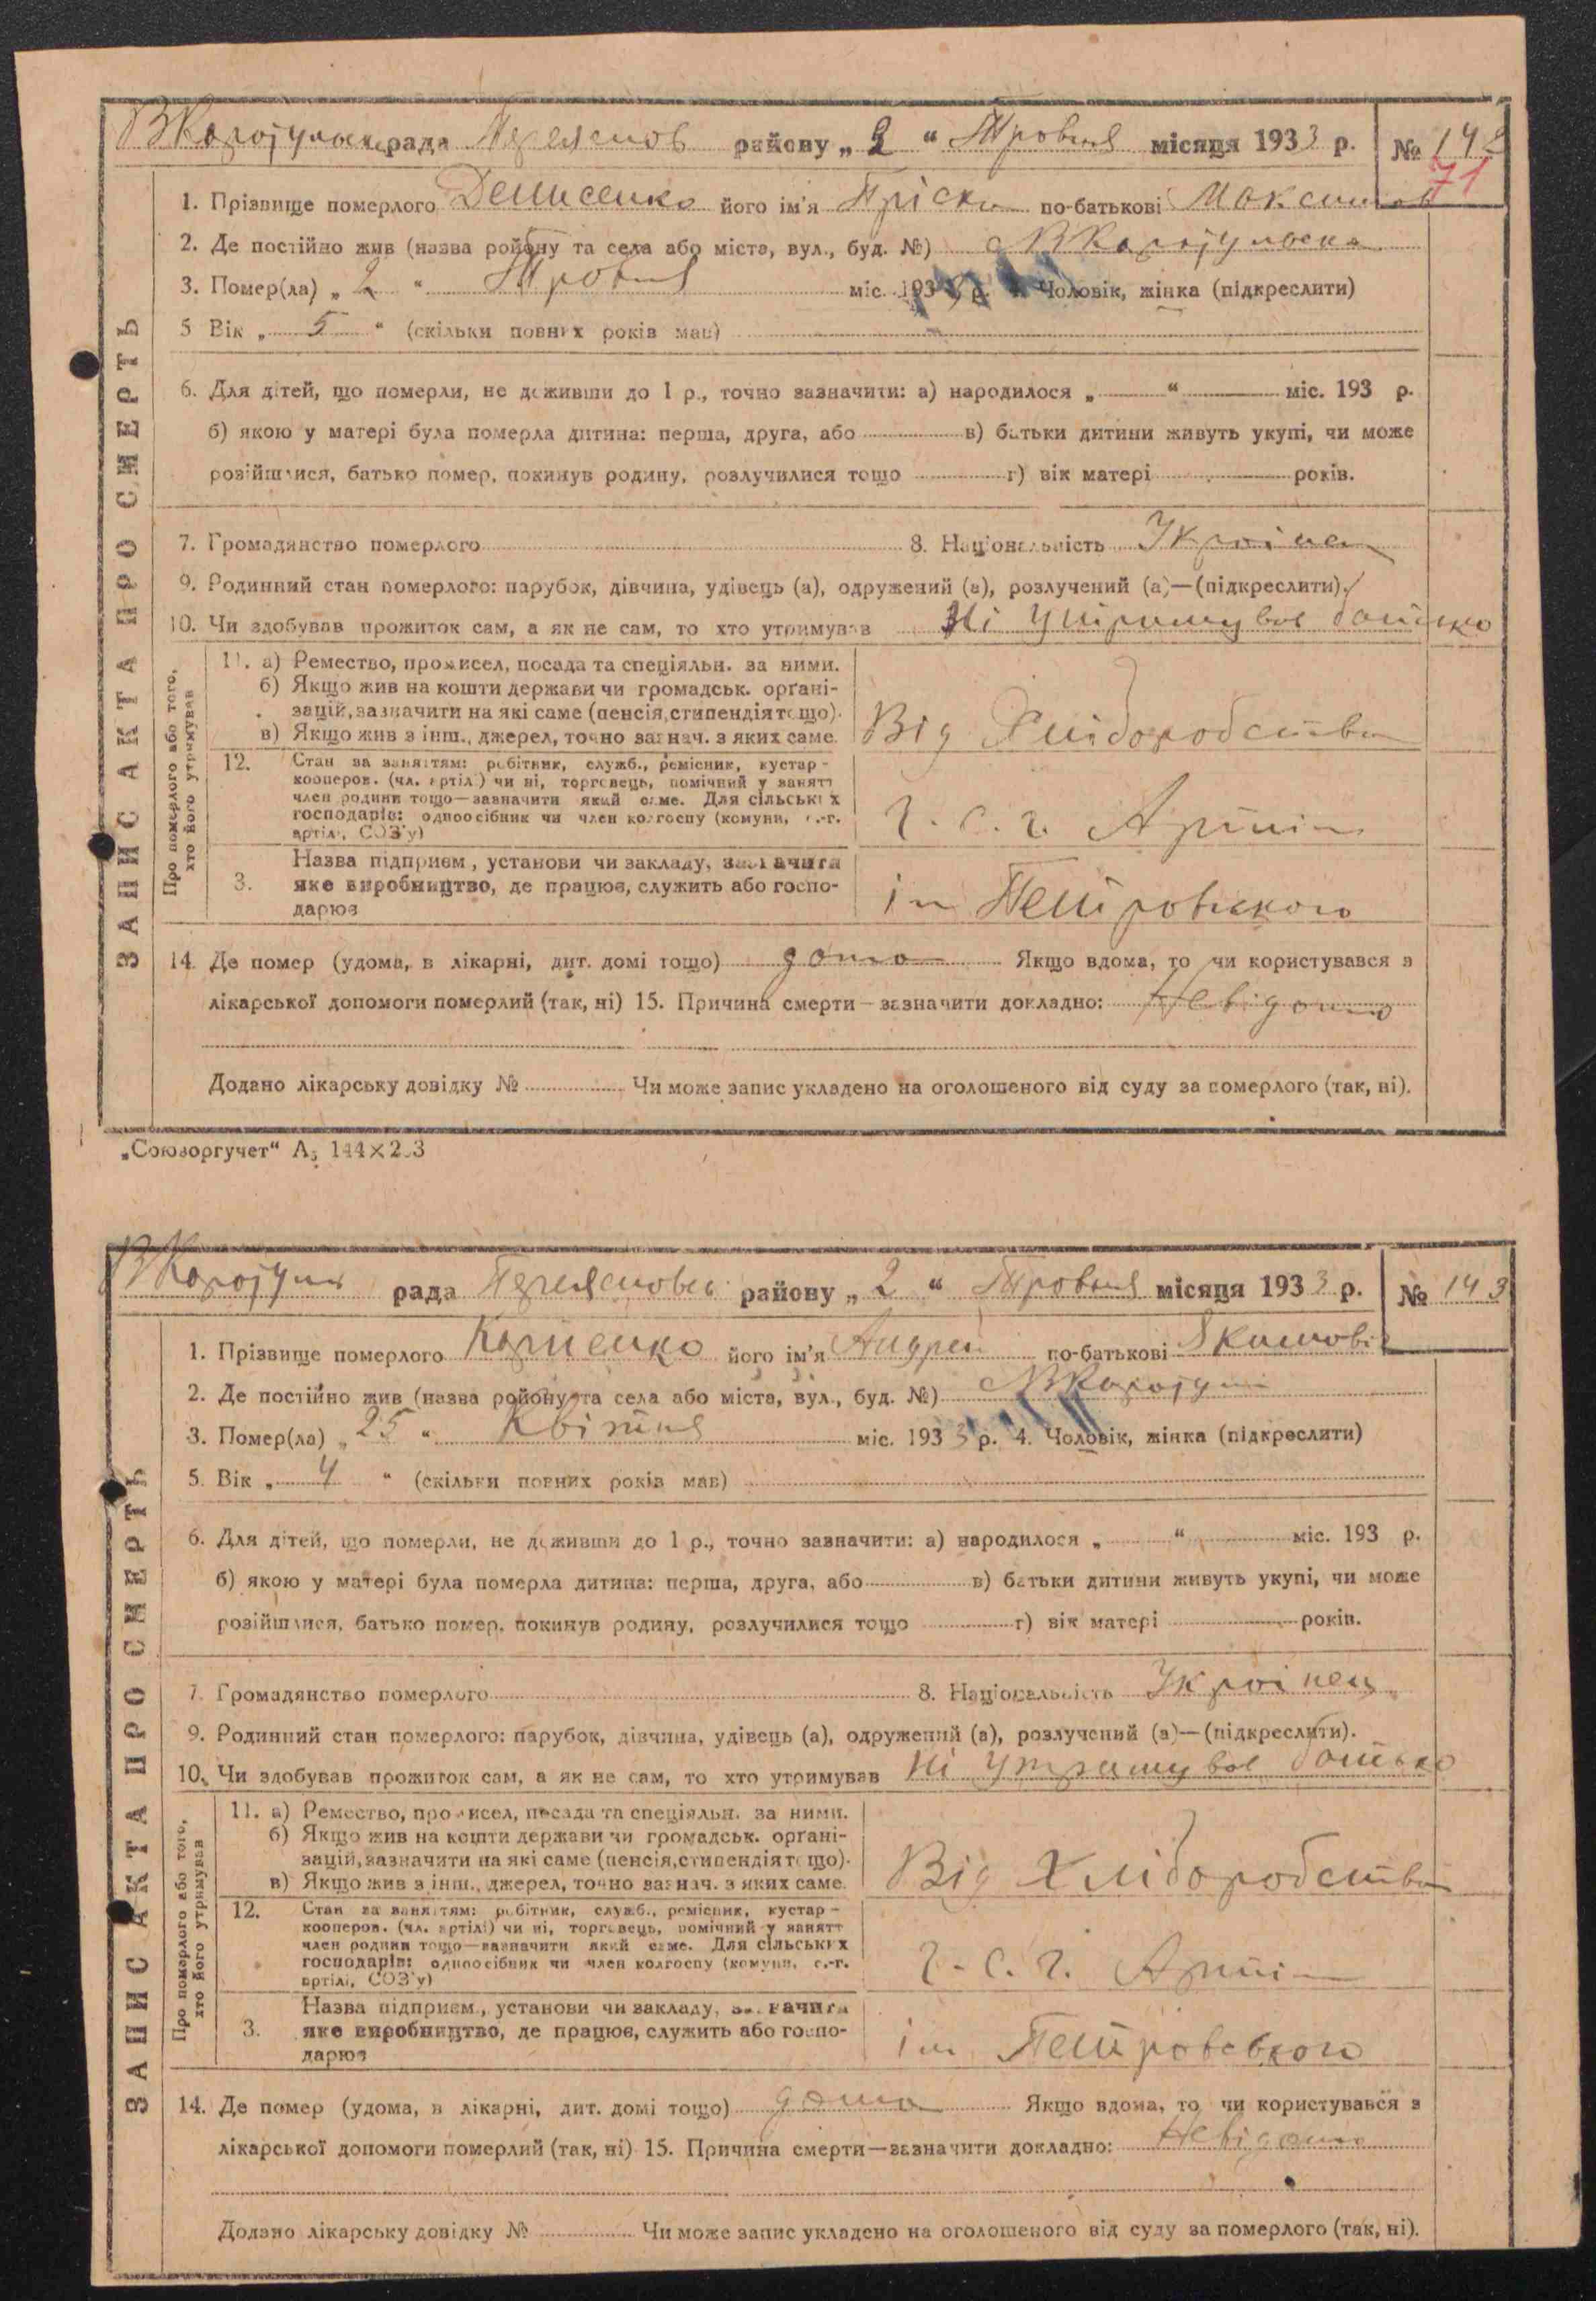 ЗАПИС АКТА ПРО СМЕРТЬ
рада район у „ 2 “ Травня місяця 1933 р. № 142
71
1. Прізвище померлого Денисенко його ім'я Пріська по-батькові Максимов
2. Де постійно жив (назва ройону та села або міста, вул., буд. №) с
3. Помер(ла) „ 2 “ Травня міс. 1933 р. 4. Чоловік, жінка (підкреслити)
5 Вік „ 5 “ (скільки повних років мав)
6. Для дітей, що померли, не доживши до 1 р., точно зазначити: а) народилося „ “ міс. 193 р.
б) якою у матері була померла дитина: перша, друга, або в) батьки дитини живуть укупі, чи може
розійшлися, батько помер, покинув родину, розлучилися тощо г) вік матері років.
7. Громадянство померлого 8. Національність Украінец
9. Родинний стан померлого: парубок, дівчина, удівець (а), одружений (а), розлучений (а)—(підкреслити).
10. Чи здобував прожиток сам, а як не сам, то хто утримував Ні Утримував батько
Про померлого або того, хто його утримував
11. а) Ремество, промисел, посада та спеціяльн. за ними.
б) Якщо жив на кошти держави чи громадськ. орґані-
зацій, зазначити на які саме (пенсія, стипендія тощо).
в) Якщо жив з інш., джерел, точно зазнач. з яких саме. Від Хліборобства
12. Стан за заняттям: робітник, служб., ремісник, кустар -
кооперов. (чл. артілі) чи ні, торговець, помічний у занятт
член родини тощо—зазначити який саме. Для сільських
господарів: одноосібник чи член колгоспу (комуни, с.-г.
артілі, СОЗ'у) Ч. С. Г. Артіл
3. Назва підприєм., установи чи закладу, зазначити
яке виробництво, де працює, служить або госпо-
дарює ім Петровского
14. Де помер (удома, в лікарні, дит. домі тощо) дома Якщо вдома, то чи користувався з
лікарської допомоги померлий (так, ні) 15. Причина смерти—зазначити докладно: Невідомо
Додано лікарську довідку № Чи може запис укладено на оголошеного від суду за померлого (так, ні).
„Союзоргучет“ А₅ 144×203
ЗАПИС АКТА ПРО СМЕРТЬ
рада району „ 2 “ Травня місяця 1933 р. № 143
1. Прізвище померлого його ім'я Андрей по-батькові Якимові
2. Де постійно жив (назва ройону та села або міста, вул., буд. №) с
3. Помер(ла) „ 25 “ Квітня міс. 1933 р. 4. Чоловік, жінка (підкреслити)
5. Вік „ 4 “ (скільки повних років мав)
6. Для дітей, що померли, не доживши до 1 р., точно зазначити: а) народилося „ “ міс. 193 р.
б) якою у матері була померла дитина: перша, друга, або в) батьки дитини живуть укупі, чи може
розійшлися, батько помер, покинув родину, розлучилися тощо г) вік матері років.
7. Громадянство померлого 8. Національність Украінец
9. Родинний стан померлого: парубок, дівчина, удівець (а), одружений (а), розлучений (а)—(підкреслити).
10. Чи здобував прожиток сам, а як не сам, то хто утримував Ні Утримував батько
Про померлого або того, хто його утримував
11. а) Ремество, промисел, посада та спеціяльн. за ними.
б) Якщо жив на кошти держави чи громадськ. орґані-
зацій, зазначити на які саме (пенсія, стипендія тощо).
в) Якщо жив з інш., джерел, точно зазнач. з яких саме. Від Хліборобства
12. Стан за заняттям: робітник, служб., ремісник, кустар -
кооперов. (чл. артілі) чи ні, торговець, помічний у занятт
член родини тощо—зазначити який саме. Для сільських
господарів: одноосібник чи член колгоспу (комуни, с.-г.
артілі, СОЗ'у) Ч. С. Г. Артіл
3. Назва підприєм., установи чи закладу, зазначити
яке виробництво, де працює, служить або госпо-
дарює ім Петровського
14. Де помер (удома, в лікарні, дит. домі тощо) дома Якщо вдома, то чи користувався з
лікарської допомоги померлий (так, ні) 15. Причина смерти—зазначити докладно: Невідомо
Додано лікарську довідку № Чи може запис укладено на оголошеного від суду за померлого (так, ні).